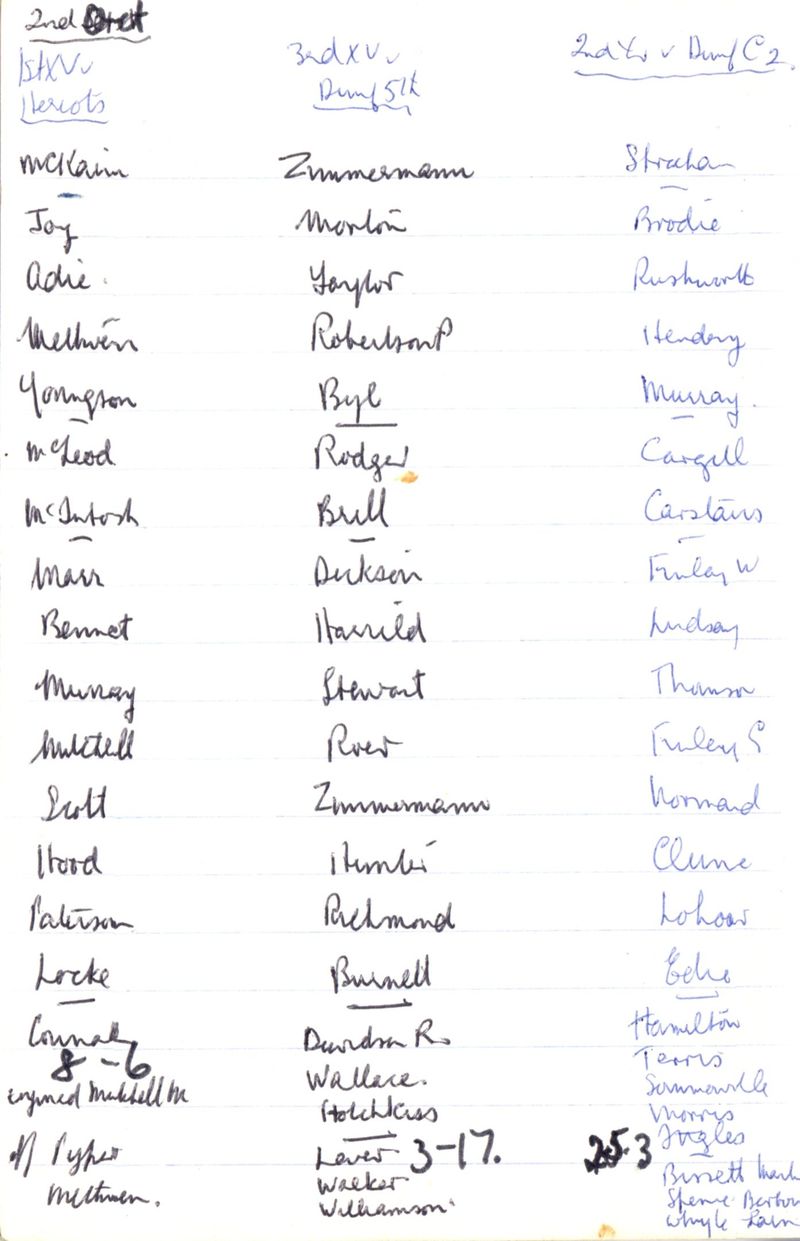 2nd Oct
1st XV v
Heriots
McKain
Joy
Adie.
Methven
Youngson
McLeod
McIntosh
Marr
Bennet
Murray
Mitchell
Scott
Hood
Paterson
Locke
Connal
8 - 6
injured Mitchell M
Pyper
Methven.
3rd XV v
Dunf 5th
Zimmermann
Morton
Taylor
Robertson P
Byl
Rodger
Brill
Dickson
Harrild
Stewart
Roer
Zimmermann
Hunter
Richmond
Burnell
Davidson R.
Wallace.
Hotchkiss
Lever 3-17.
Walker
Williamson
2nd Yr v Dunf C 2.
Strachan
Brodie
Rushworth
Hendry
Murray.
Cargill
Carstairs
Finlay W
Lindsay
Thomson
Finlay S
Normand
Clune
Lohoar
Edie
Hamilton
Terris
Sommerville
Morris
Ingles
25.3
Bissett Mark
Spence Berton
Whyte Lain